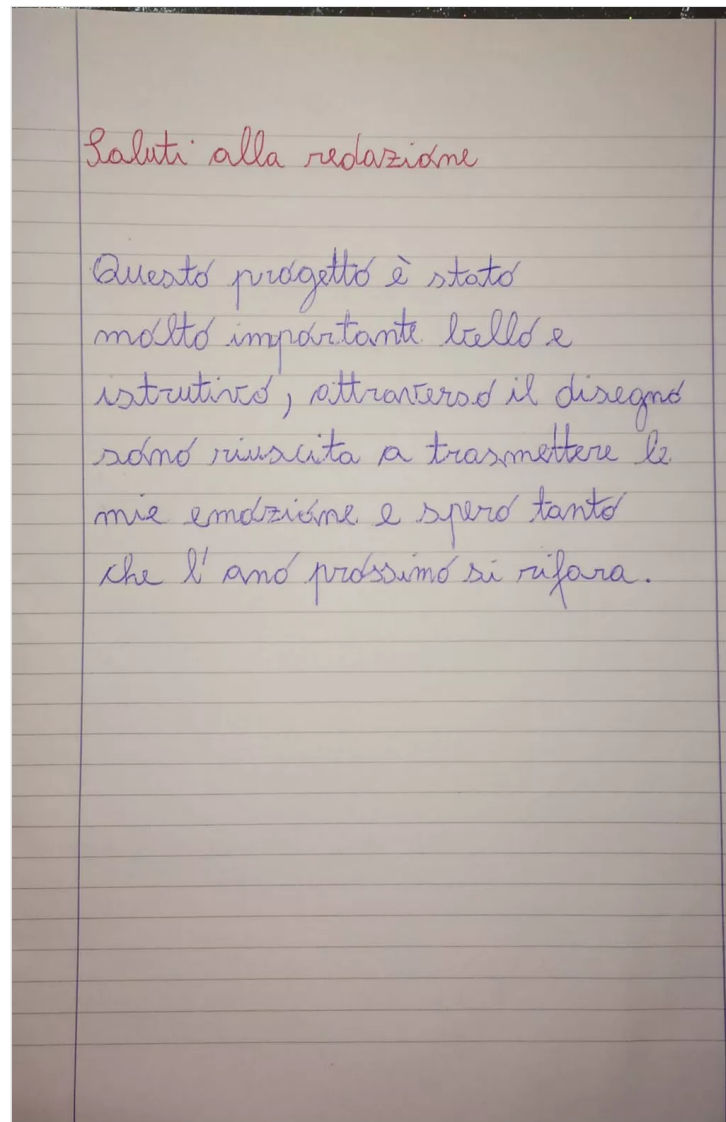 Saluti alla redazione
Questo progetto è stato
molto importante bello e
istrutivo, attraverso il disegno
sono riuscita a trasmettere le
mie emozione e spero tanto
che l'ano prossimo si rifara.